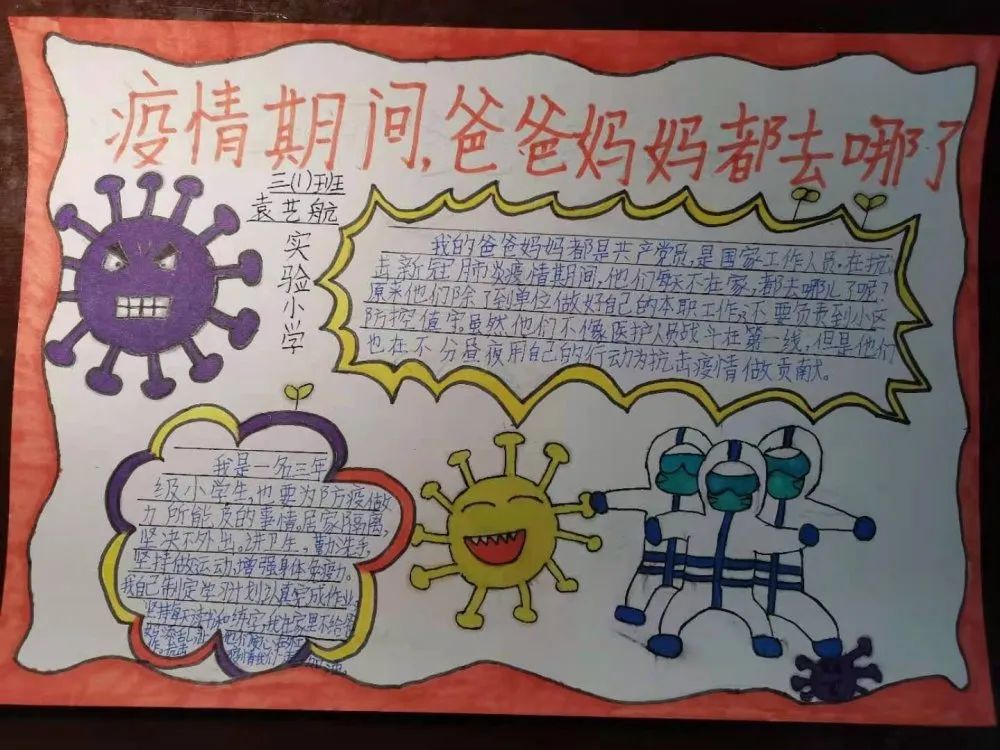 疫情期间,爸爸妈妈都去哪了
三(1)班
袁艺航
实验小学
我的爸爸妈妈都是共产党员,是国家工作人员.在抗
击新冠肺炎疫情期间,他们每天不在家,都去哪儿了呢?
原来他们除了到单位做好自己的本职工作,还要负责到小区
防控值守.虽然他们不像医护人员战斗在第一线,但是他们
也在不分昼夜用自己的行动为抗击疫情做贡献。
我是一名三年
级小学生,也要为防疫做
力所能及的事情.居家隔离,
坚决不外出。讲卫生。勤洗手,
坚持做运动,增强身体免疫力。
我自己制定学习计划,认真完成作业,
坚持每天读书和练字;我在家里不给爸